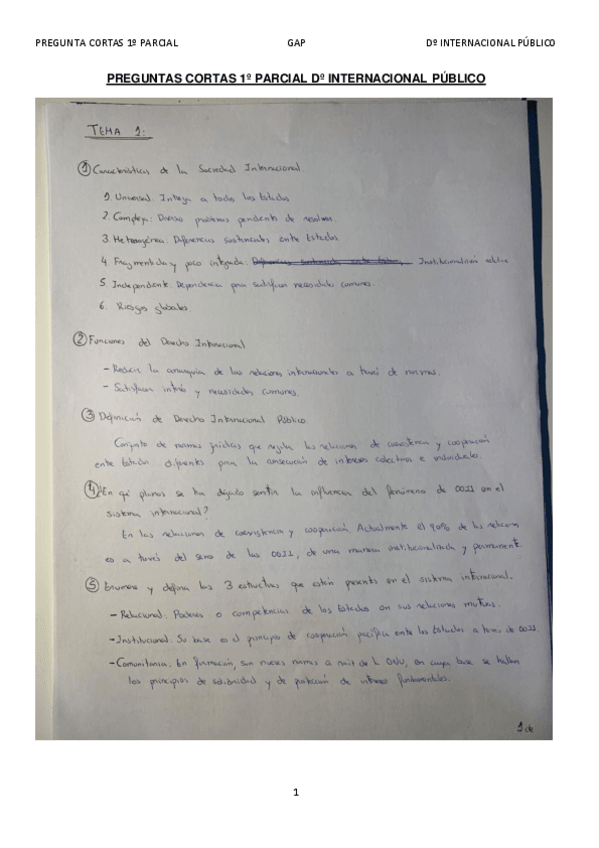 PREGUNTA CORTAS 1º PARCIAL GAP Dº INTERNACIONAL PÚBLICO
PREGUNTAS CORTAS 1º PARCIAL Dº INTERNACIONAL PÚBLICO
TEMA 1:
① Características de la Sociedad Internacional.
1. Universal. Integra a todos los Estados
2. Compleja: Diversos problemas pendientes de resolver.
3. Heterogénea. Diferencias sustanciales entre Estados.
4. Fragmentada y poco integrada. Institucionalización
5. Independiente. Dependencia para satisfacer necesidades comunes.
6. Riesgos globales.
② Funciones del Derecho Internacional
- Reducir la anarquía de las relaciones internacionales a través de normas.
- Satisfacer interés y necesidades comunes.
③ Definición de Derecho Internacional Público.
Conjunto de normas jurídicas que regulan las relaciones de coexistencia y cooperación
entre Estados diferentes para la consecución de intereses colectivos e individuales.
④ ¿En qué planos se ha dejado sentir la influencia del fenómeno de OOII en el
sistema internacional?
En las relaciones de coexistencia y cooperación. Actualmente el 90% de las relaciones
es a través del seno de las OOII, de una manera institucionalizada y permanente.
⑤ Enumera y define las 3 estructuras que están presentes en el sistema internacional.
- Relacional: Poderes o competencias de los Estados en sus relaciones mutuas.
- Institucional: Su base es el principio de cooperación pacífica entre los Estados a través de OOII.
- Comunitaria: En formación, son nuevas normas a raíz de la ONU, en cuya base se hallan
los principios de solidaridad y de protección de intereses fundamentales.
1 de
1